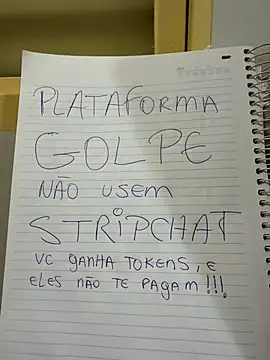 PLATAFORMA
GOLPE
NÃO USEM
STRIPCHAT
VC GANHA TOKENS, E
ELES NÃO TE PAGAM!!!